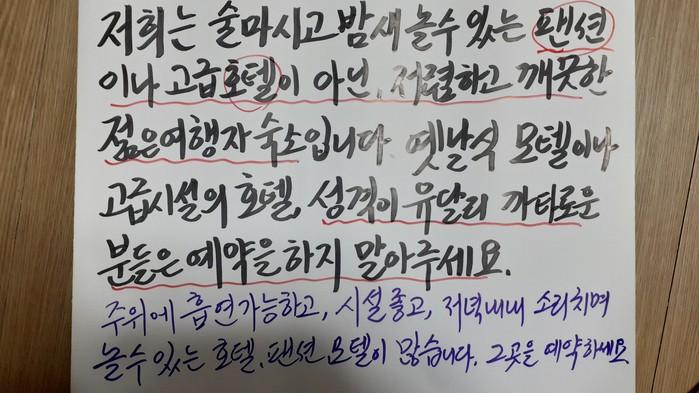 저희는 술마시고 밤새 놀수 있는 팬션
이나 고급호텔이 아닌, 저렴하고 깨끗한
젊은여행자 숙소입니다. 옛날식 모텔이나
고급시설의 호텔, 성격이 유달리 까타로운
분들은 예약을하지 말아주세요.
주위에 흡연가능하고, 시설좋고, 저녁내내 소리치며
놀수 있는 호텔, 팬션 모텔이 많습니다. 그곳을 예약하세요